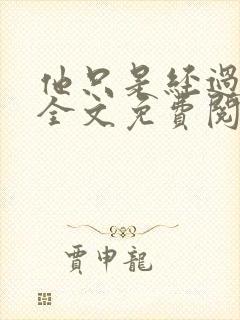 他只是经過
全文免費閱
賈申龍